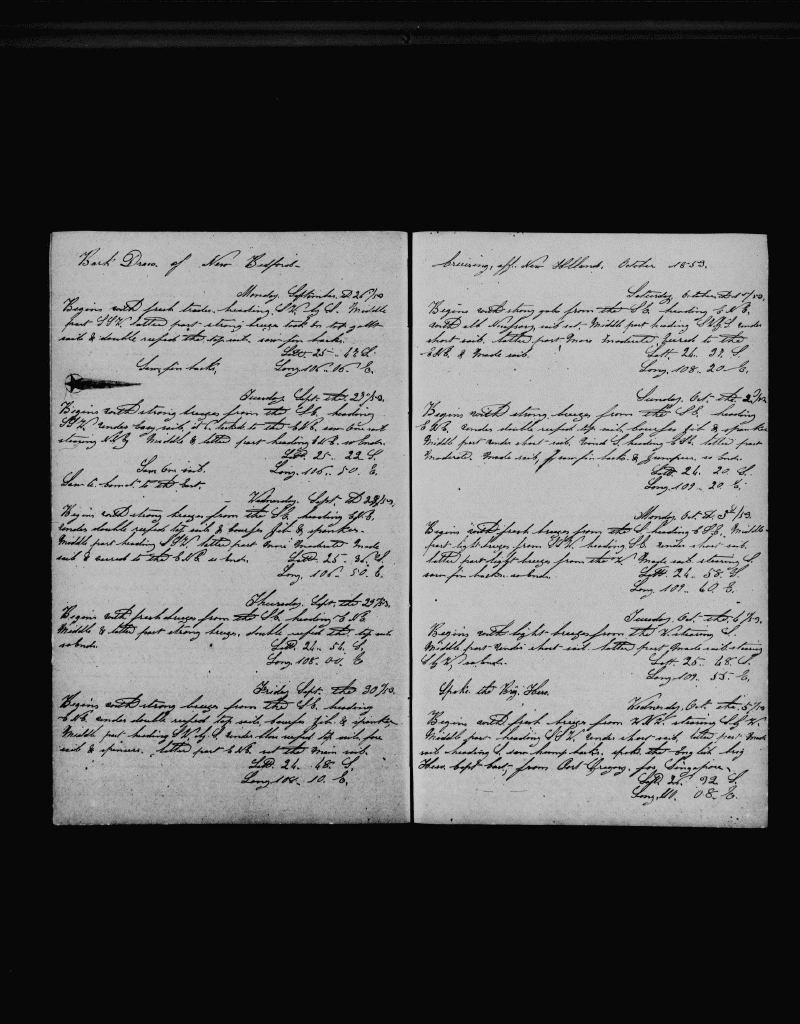 Bark Draco of New Bedford
Monday September D 26/53
Begins with fresh trades heading SW by S. Middle
part SSW. latter part strong breeze took in top gallt
sail & double reefed the top sails. saw fin backs.
Latt. 25 - 42 S.
Saw fin backs, Long. 106 - 16 E.
Tuesday Sept. the 27/53.
Begins with strong breezes from the SE. heading
SSW under easy sail, at tacked to the ENE. saw one sail
steering NNE Middle & latter part heading ENE so ends.
Latt. 25 - 22 S.
Saw one sail. Long. 106 - 50 E.
Wednesday Sept. D 28/53,
Begins with strong breezes from the SE. heading ENE,
under double reefed top sails & courses jib & spanker.
Middle part heading SSW, latter part more moderate made
sail & to the ENE so ends. Latt. 25 - 36 S.
Long. 106 - 50 E.
Thursday Sept. the 29/53.
Begins with fresh breezes from the SE, heading ENE
Middle & latter part strong breeze, double reefed the top sails
so ends. Latt. 24 - 54 S.
Long. 108 - 00 E
Friday Sept. the 30/53.
Begins with strong breezes from the SE. heading
ENE under double reefed top sails, courses jib & spanker
Middle part heading SW by S, under reefed top sails, fore
sail & spencers. latter part ENE set the main sail.
Latt. 24 48 S.
Long. 108 - 10. E.
Cruising, off New Holland. October 1853.
Saturday October D 1/53,
Begins with strong gale from the SE. heading ENE.
sail set. Middle part heading under
short sail. latter part more moderate to the
ENE. & made sail. Latt. 24. S.
Long. 108 - 20 E.
Sunday, Oct. the 2/53
Begins with strong breezes from the SE. heading
ENE, under double reefed top sails, courses jib & spanker
Middle part under short sail, wind S. heading latter part
moderate made sail, saw fin backs & so ends.
Latt. 24. 20 S.
Long. 109 - 20 E.
Monday Oct. D 3/53.
Begins with fresh breezes from the S. heading ESE, Middle
part light breezes from heading SE under short sail.
latter part light breeze from the W made sail steering S
saw fin backs so ends. Latt. 24 - 58 S.
Long 109 - 40 E.
Tuesday Oct. the 4/53.
Begins with light breezes from the W steering S.
Middle part under short sail. latter part made sail steering
S by W, so ends. Latt. 25 - 48 S.
Long 109. 55 - E.
Spoke the Brig Hero.
Wednesday Oct. the 5/53
Begins with fresh breezes from WNW. steering S by W
Middle part heading under short sail, latter part made
sail heading S. saw hump backs. spoke the English brig
Hero. Capt from Port Gregory for Singapore.
Latt. 26. S.
Long. 110. 08 - E.